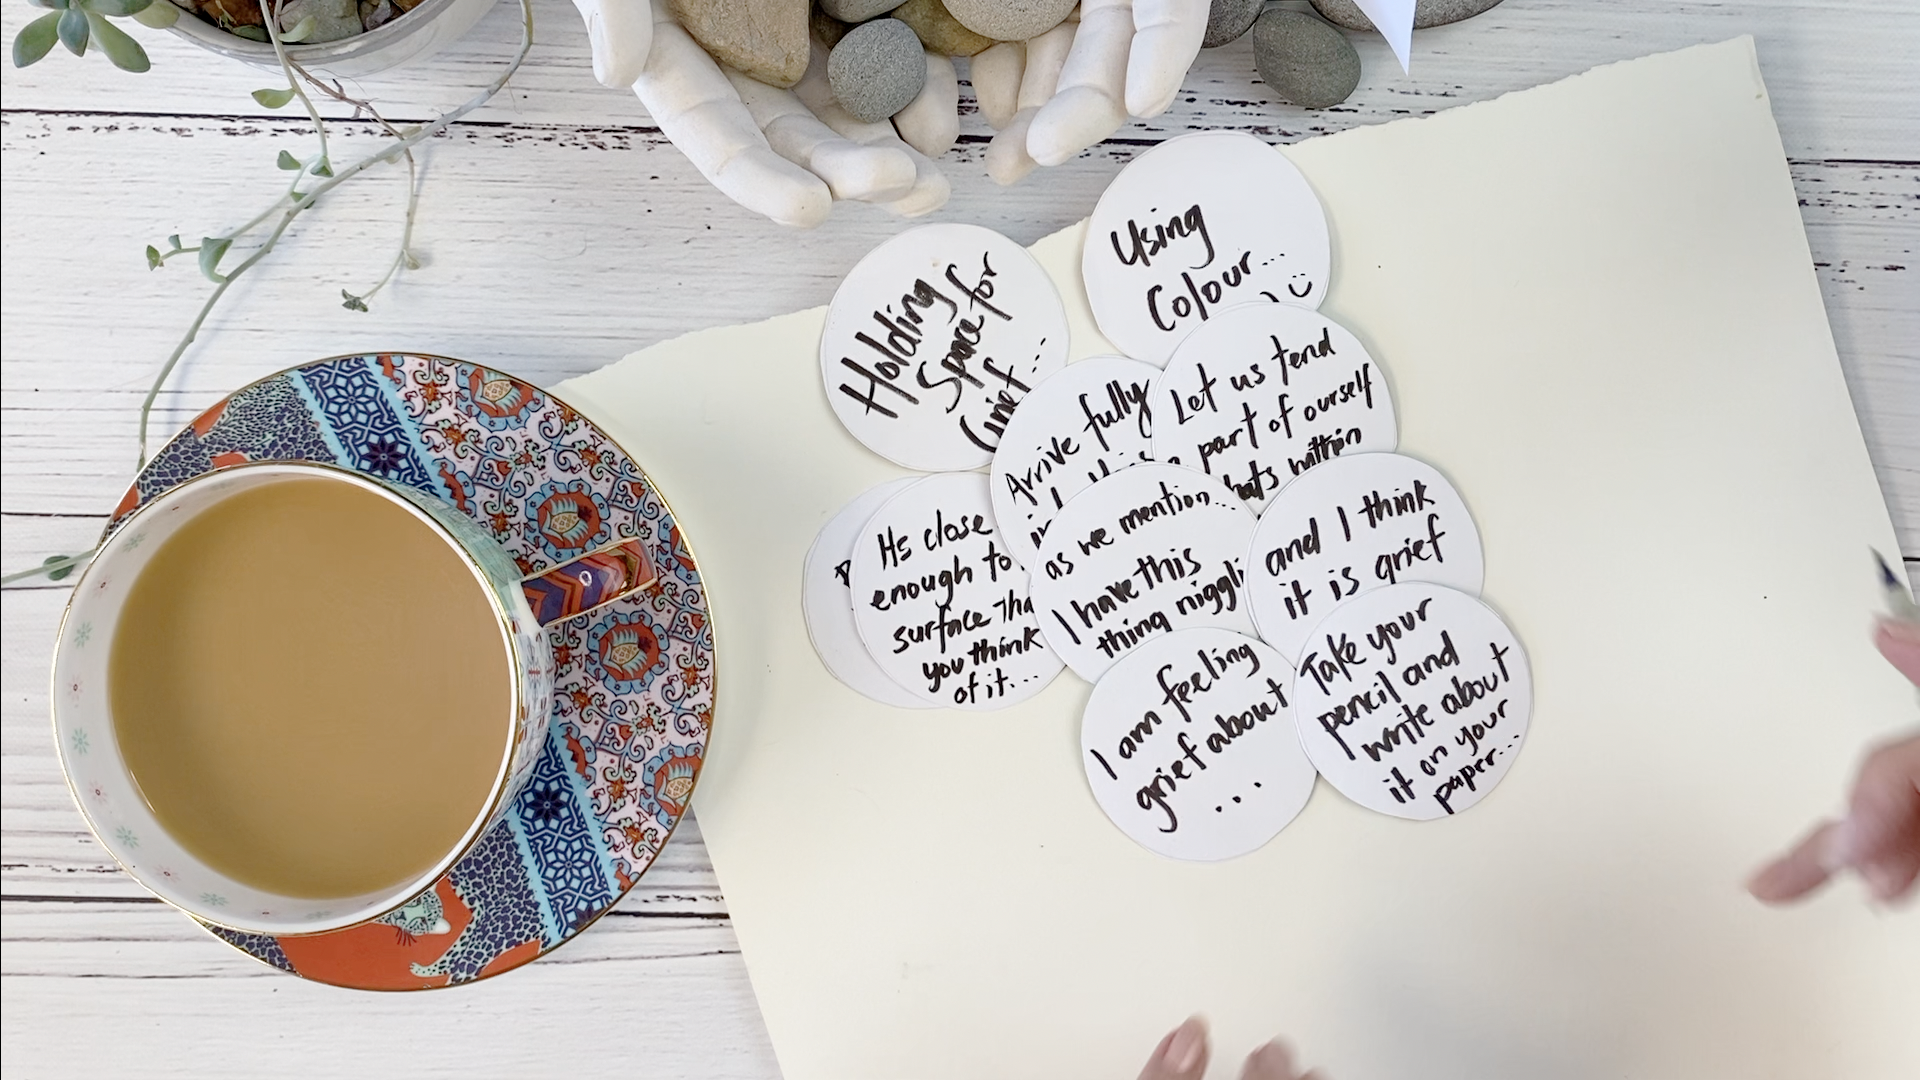 Using
Colour...
Holding
Space for
Grief...
Let us tend
part of ourself
within
Arrive fully
Hs close
enough to
surface
you think
of it...
as we mention...
I have this
thing niggli
and I think
it is grief
I am feeling
grief about
...
Take your
pencil and
write about
it on your
paper...